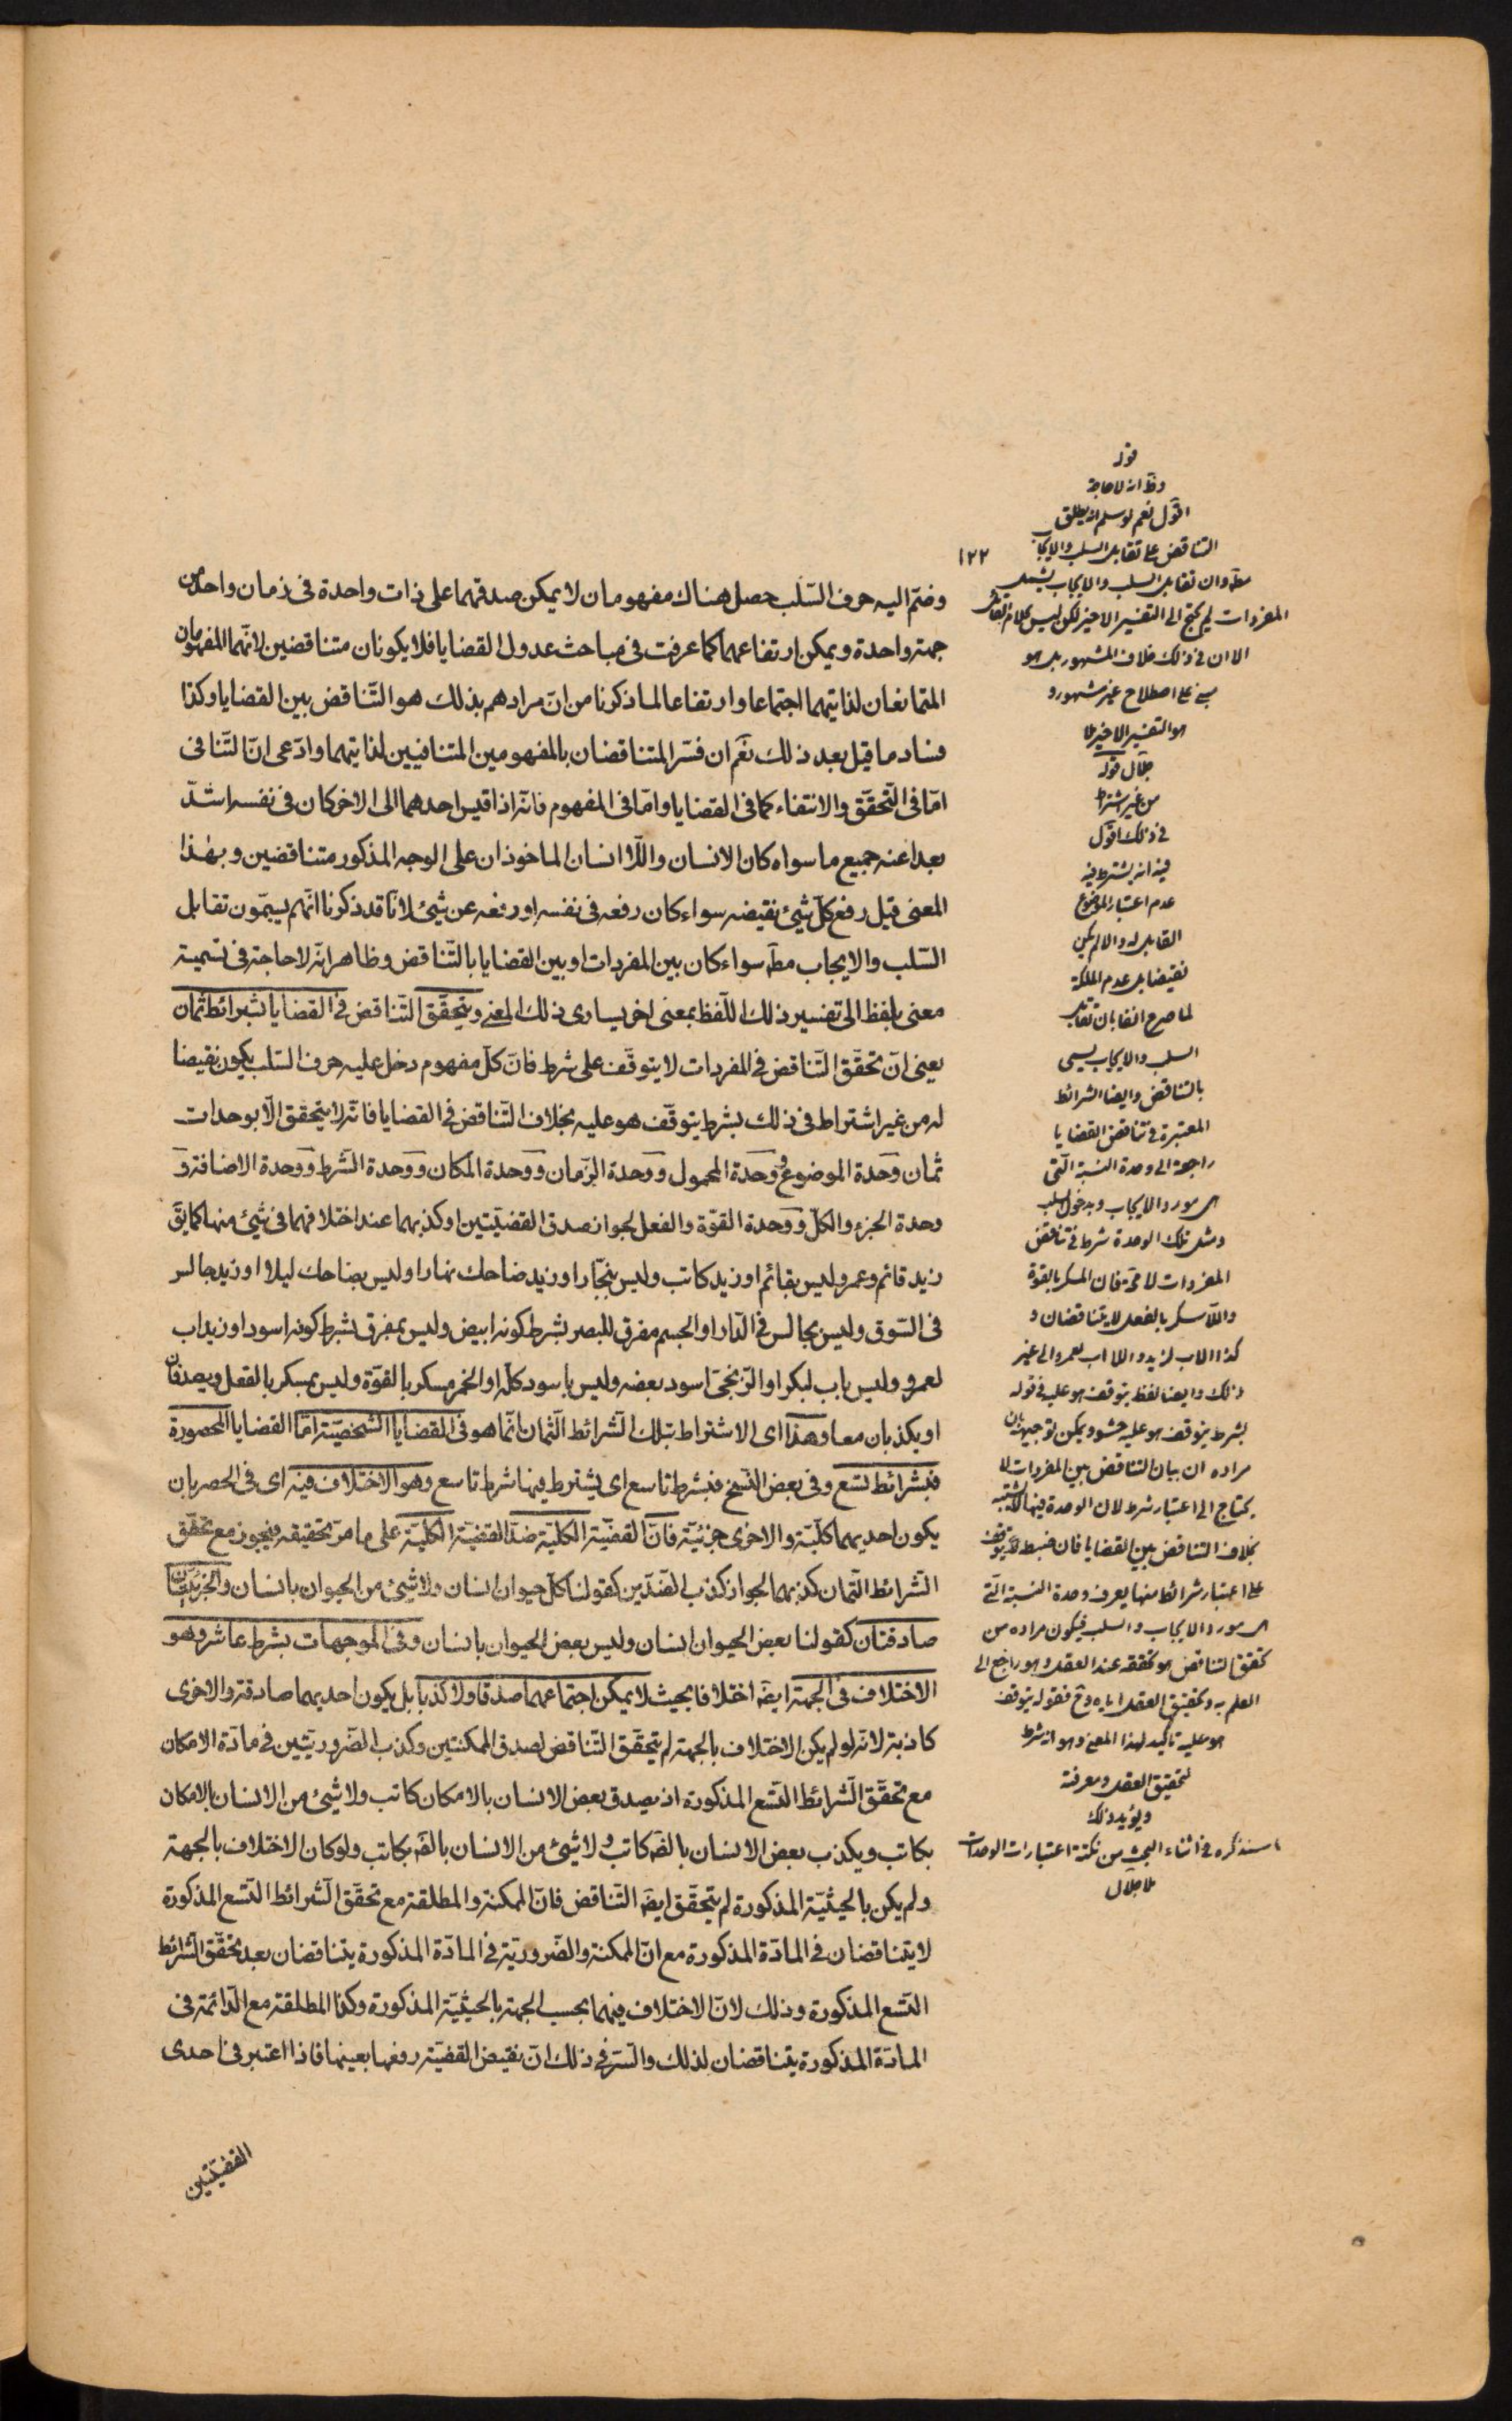 ١٢٢
وضمّ اليه حرف السّلب حصل هناك مفهومان لا يمكن صدقهما على ذات واحدة فى زمان واحد من
جهة واحدة ويمكن ارتفاعهما كما عرفت فى مباحث عدول القضايا فلا يكونان متناقضين لانّهما المفهومان
المتمانعان لذاتيهما اجتماعا وارتفاعا لما ذكرنا من انّ مرادهم بذلك هو التّناقض بين القضايا وكذا
فساد ما قيل بعد ذلك نعم ان فسّر المتناقضان بالمفهومين المتنافيين لذاتيهما وادّعى انّ التّنافى
امّا فى التّحقّق والانتفاء كما فى القضايا وامّا فى المفهوم فانّه اذا قيس احدهما الى الاخر كان فى نفسه اشدّ
بعدا عنه جميع ما سواه كان الانسان واللّا انسان الماخوذان على الوجه المذكور متناقضين وبهذا
المعنى قيل رفع كلّ شيئ نقيضه سواء كان رفعه فى نفسه او رفعه عن شيئ لانّا قد ذكرنا انّهم يسمّون تقابل
السّلب والايجاب مطّه سواء كان بين المفردات او بين القضايا بالتّناقض وظاهر انّه لا حاجة فى تسمية
معنى بلفظ الى تفسير ذلك اللّفظ بمعنى اخر يساوى ذلك المعنى ويتحقّق التّناقض فى القضايا بشرائط ثمان
يعنى انّ تحقّق التّناقض فى المفردات لا يتوقّف على شرط فانّ كلّ مفهوم دخل عليه حرف السّلب يكون نقيضا
له من غير اشتراط فى ذلك بشرط يتوقّف هو عليه بخلاف التّناقض فى القضايا فانّه لا يتحقق الّا بوحدات
ثمان وحدة الموضوع ووحدة المحمول ووحدة الزّمان ووحدة المكان ووحدة الشّرط ووحدة الاضافة و
وحدة الجزء والكلّ ووحدة القوّة والفعل لجواز صدق القضيّتين او كذبهما عند اختلافهما فى شيئ منها كما يقّ
زيد قائم وعمرو ليس بقائم او زيد كاتب وليس بنجّار او زيد ضاحك نهارا وليس بضاحك ليلا او زيد جالس
فى السّوق وليس بجالس فى الدّار او الجسم مفرق للبصر بشرط كونه ابيض وليس بمفرق بشرط كونه اسود او زيد اب
لعمرو وليس باب لبكر او الزّنجىّ اسود بعضه وليس باسود كلّه او الخمر مسكر بالقوّة وليس بمسكر بالفعل ويصدقان
او يكذبان معا وهذا اى الاشتراط بتلك الشّرائط الثّمان انّما هو فى القضايا الشّخصيّة امّا القضايا المحصورة
فبشرائط تسع وفى بعض النّسخ فبشرط تاسع اى يشترط فيها شرط تاسع وهو الاختلاف فيه اى فى الحصر بان
يكون احديهما كليّة والاخرى جزئيّة فانّ القضيّة الكليّة ضدّ القضيّة الكليّة على ما مرّ تحقيقه فيجوز مع تحقّق
الشّرائط الثّمان كذبهما لجواز كذب الضّدّين كقولنا كلّ حيوان انسان ولا شيئ من الحيوان بانسان والجزئيّتان
صادقتان كقولنا بعض الحيوان انسان وليس بعض الحيوان بانسان وفى الموجهات بشرط عاشر وهو
الاختلاف فى الجهة ايضه اختلافا بحيث لا يمكن اجتماعهما صدقا ولا كذبا بل يكون احديهما صادقة والاخرى
كاذبة لانّه لو لم يكن الاختلاف بالجهة لم يتحقّق التّناقض لصدق الممكنتين وكذب الضّروريّتين فى مادّة الامكان
مع تحقّق الشّرائط التّسع المذكورة اذ يصدق بعض الانسان بالامكان كاتب ولا شيئ من الانسان بالامكان
بكاتب ويكذب بعض الانسان بالضّه كاتب ولا شيئ من الانسان بالضّه بكاتب ولو كان الاختلاف بالجهة
ولم يكن بالحيثيّة المذكورة لم يتحقّق ايضه التّناقض فانّ الممكنة والمطلقة مع تحقّق الشّرائط التّسع المذكورة
لا يتناقضان فى المادّة المذكورة مع انّ الممكنة والضّروريّة فى المادّة المذكورة يتناقضان بعد تحقّق الشّرائط
التّسع المذكورة وذلك لانّ الاختلاف فيهما بحسب الجهة بالحيثيّة المذكورة وكذا المطلقة مع الدّائمة فى
المادّة المذكورة يتناقضان لذلك والسّرّ فى ذلك انّ نقيض القضيّة رفعها بعينها فاذا اعتبر فى احدى
القضيّتين
قوله
وظّ انه لا حاجة
اقول نعم لو سلم انه يطلق
التناقض على تقابل السلب والايجاب
مطّه وان تقابل السلب والايجاب يشمل
المفردات لم يحتج الى التفسير الاخير لكن ليس كلام القائل
الا ان فى ذلك خلاف المشهور بل هو
مبنى على اصطلاح غير مشهور و
هو التفسير الاخير ملا
جلال قوله
من غير اشتراط
فى ذلك اقول
فيه انه يشترط فيه
عدم اعتبار الموضوع
القابل له والا لم يكن
نقيضا بل عدم الملكة
لما صرح انفا بان تقابل
السلب والايجاب يسمى
بالتناقض وايضا الشرائط
المعتبرة فى تناقض القضايا
راجعة الى وحدة النسبة التى
هى مورد الايجاب ومدخول السلب
ومثل تلك الوحدة شرط فى تناقض
المفردات لا محّة فان المسكر بالقوة
واللا مسكر بالفعل لا يتناقضان و
كذا الاب لزيد واللا اب لعمرو الى غير
ذلك وايضا لفظ يتوقف هو عليه فى قوله
بشرط يتوقف هو عليه حشو ويمكن توجيهه بان
مراده ان بيان التناقض بين المفردات لا
يحتاج الى اعتبار شرط لان الوحدة فيها لا تشتبه
بخلاف التناقض بين القضايا فان ضبطه يتوقف
على اعتبار شرائط منها يعرف وحدة النسبة التى
هى مورد الايجاب والسلب فيكون مراده من
تحقق التناقض هو تحققه عند العقل وهو راجع الى
العلم به وتحقيق العقل اياه وح فقوله يتوقف
هو عليه تاكيد لهذا المعنى وهو انه شرط
لتحقيق العقل ومعرفته
ويؤيد ذلك
ما سنذكره فى اثناء البحث من نكتة اعتبارات الوحدات
ملا جلال